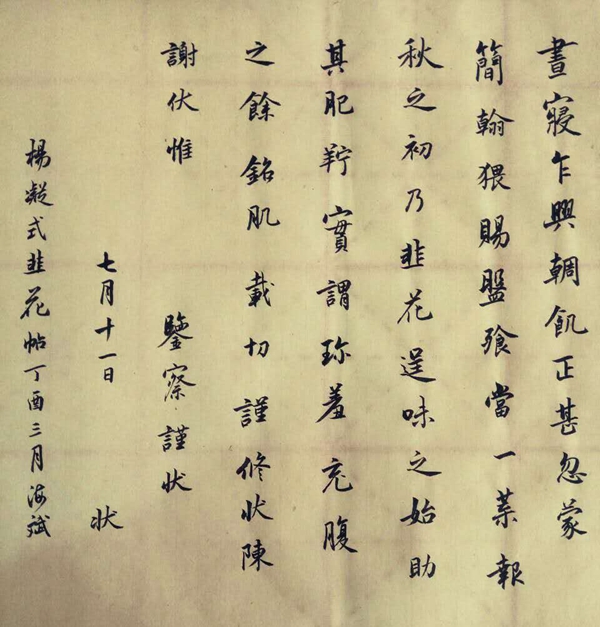 晝寢乍興輖飢正甚忽蒙
簡翰猥賜盤飧當一葉報
秋之初乃韭花逞味之始助
其肥羜實謂珍羞充腹
之餘銘肌載切謹修状陳
謝伏惟 鑒察謹状
七月十一日 状
楊凝式韭花帖丁酉三月海斌